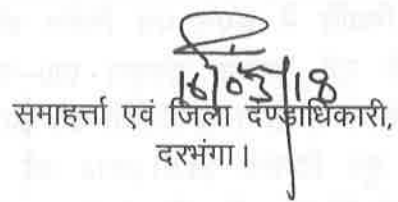 16/03/18
समाहर्त्ता एवं जिला दण्डाधिकारी,
दरभंगा।